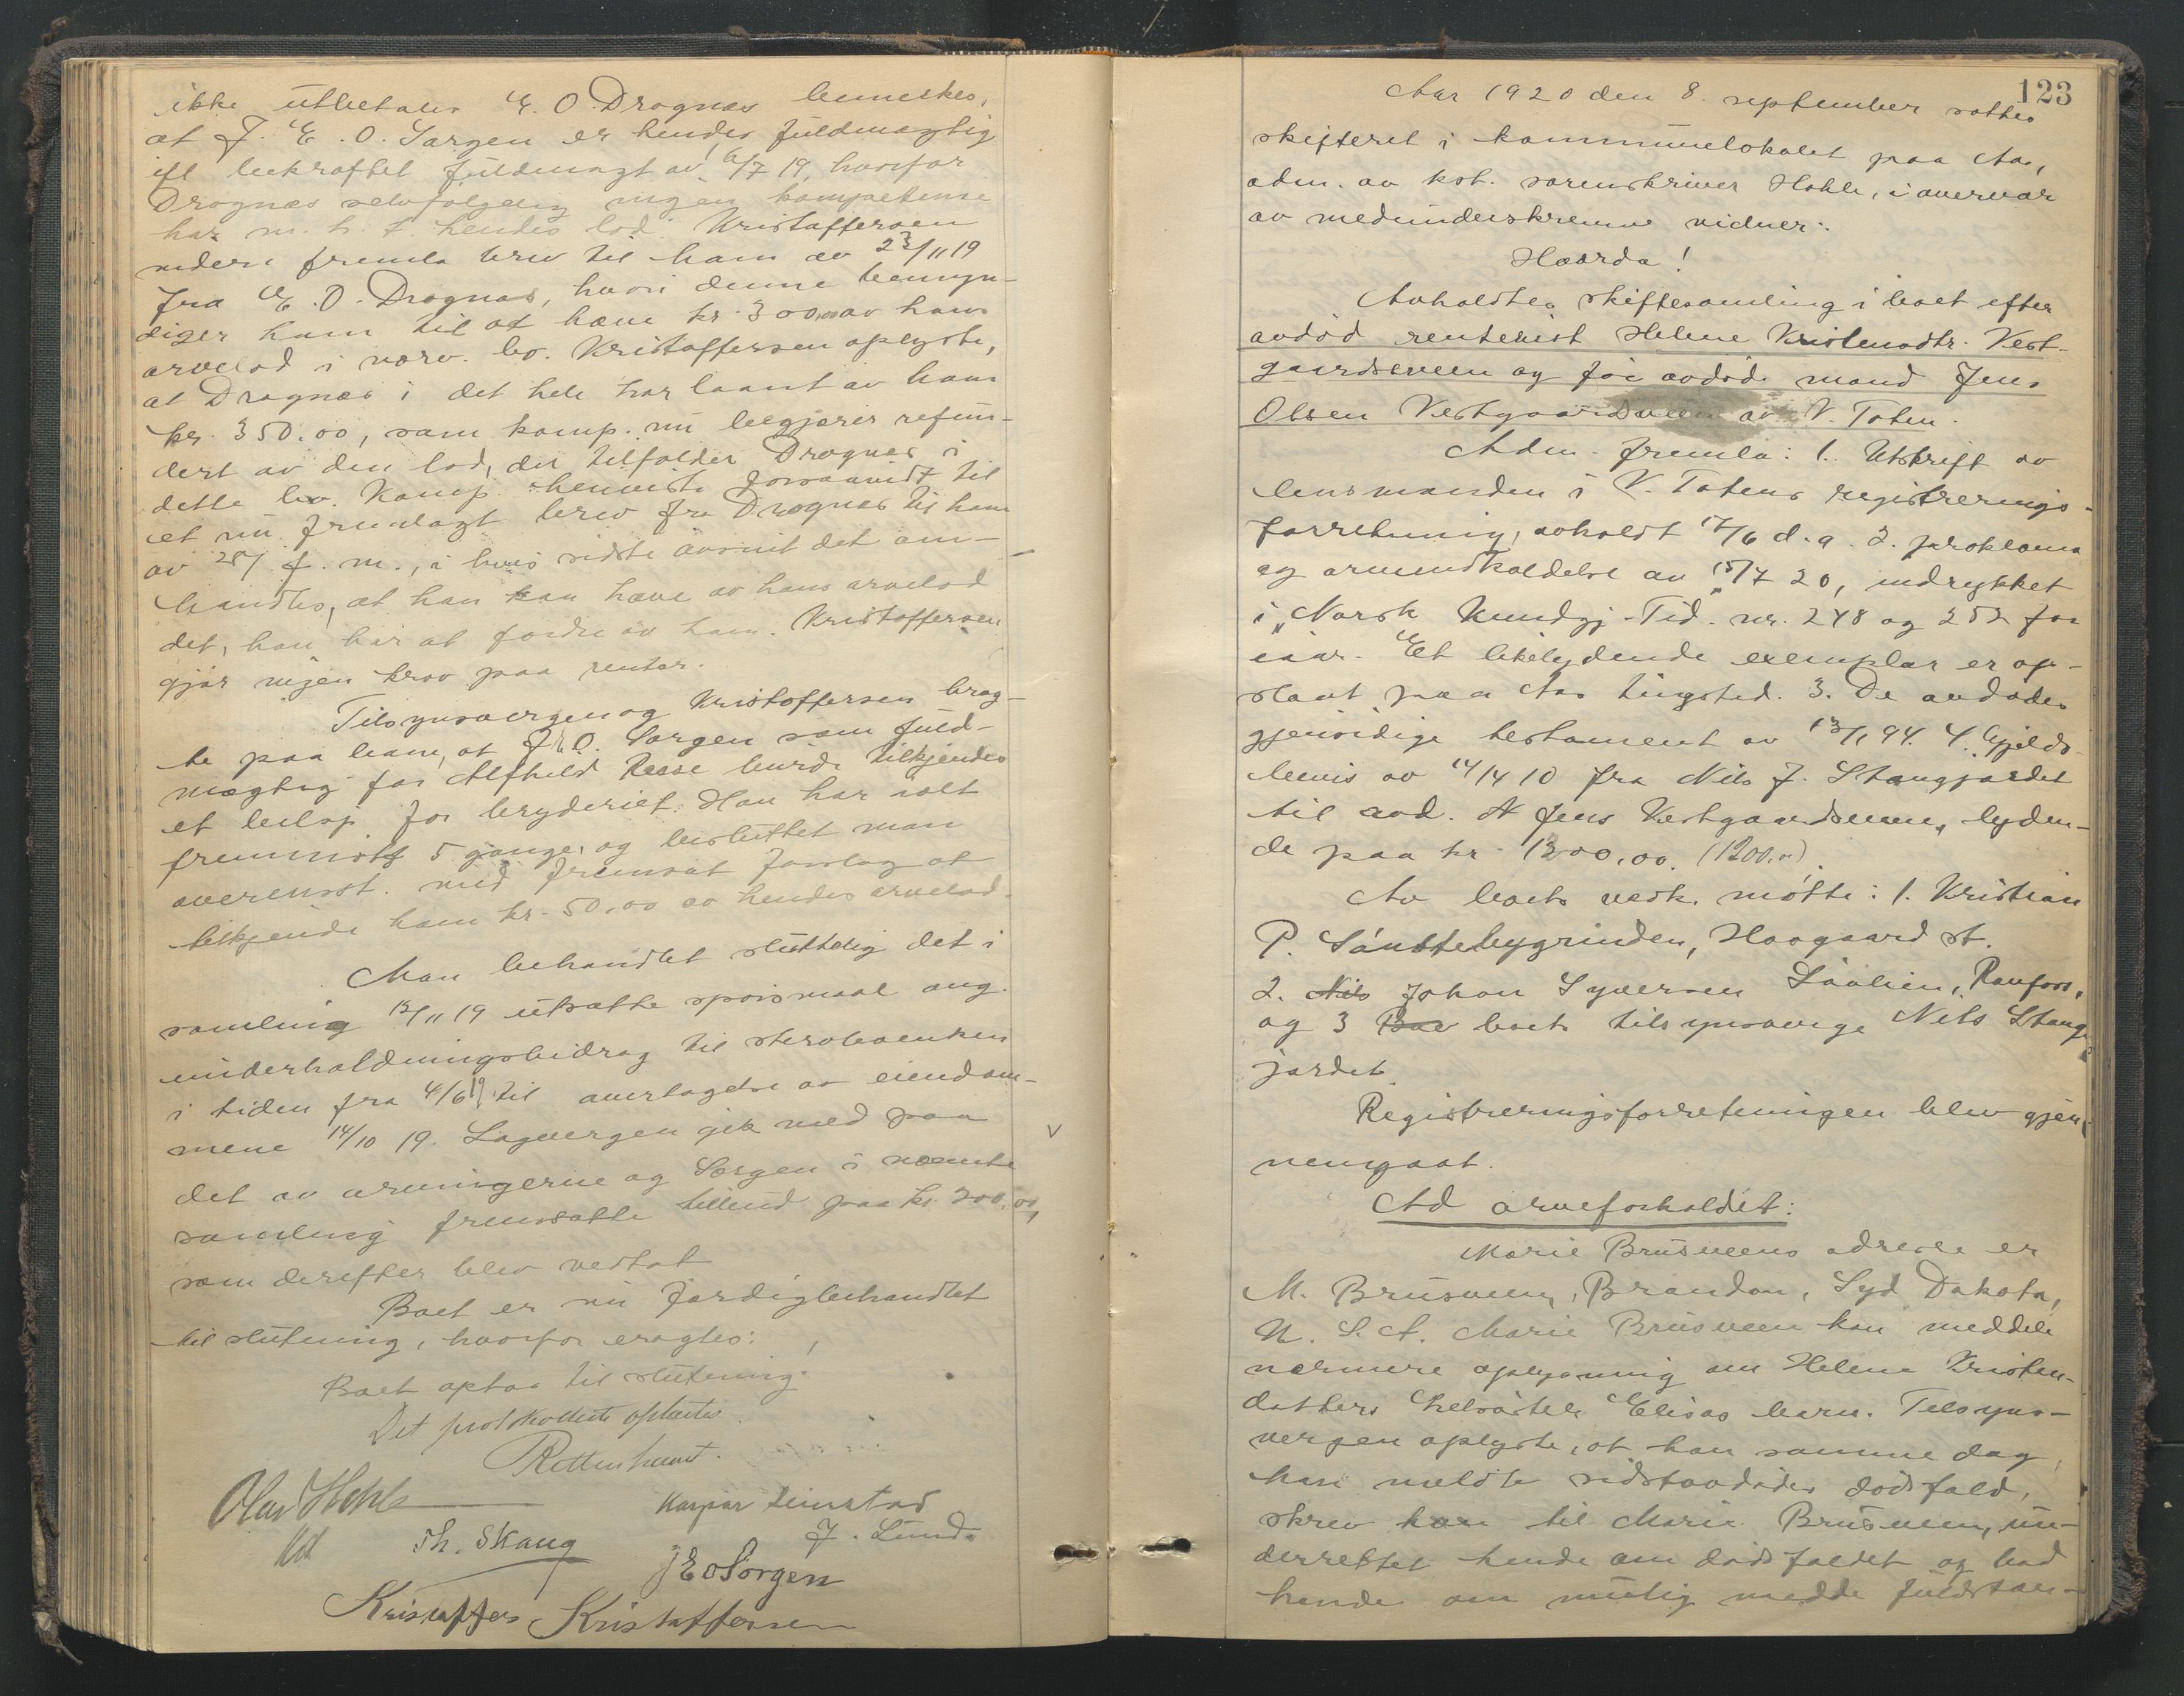 ikke utbetales E. O. Dragnæs bemerkes,
at J. E. O. Sørgen er hendes fuldmægtig
ifl bekræftet fuldmagt av 6/7 19, hvorfor
Dragnæs selvfølgelig ingen kompetense
har m. h. t. hendes lod. Kristoffersen
videre fremla brev til ham av 23/11 19
fra E. O. Dragnæs, hvori denne bemyn-
diger ham til at hæve kr. 300,00 av hans
arvelod i nærv. bo. Kristoffersen oplyste,
at Dragnæs i det hele har laant av ham
kr. 350.00, som komp. nu begjærer refun-
dert av den lod, der tilfalder Dragnæs i
dette bo. Komp. henviste forsaavidt til
et nu fremlagt brev fra Dragnæs til ham
av 28/ f. m., i hvis sidste avsnit det om-
handles, at han kan hæve av hans arvelod
det, han har at fordre av ham. Kristoffersen
gjør ingen krav paa renter.
Tilsynsvergen og Kristoffersen brag-
te paa bane, at J. E. O. Sørgen som fuld-
mægtig for Alfhild Resse burde tilkjendes
et beløp for bryderiet. Han har ialt
fremmøtt 5 gange, og besluttet man
overensst. med fremsat forslag at
tilkjende ham kr. 50.00 av hendes arvelod.
Man behandlet sluttelig det i
samling 12/11 19 utsatte spørsmaal ang.
underholdningsbidrag til sterboenken
i tiden fra 4/6 19 til overtagelse av eiendom-
mene 14/10 19. Lagvergen gik med paa
det av arvingerne og Sørgen i nævnte
samling fremsatte tilbud paa kr. 200.00,
som derefter blev vedtat
Boet er nu færdigbehandlet
til slutning, hvorfor eragtes:
Boet optas til slutning.
Det protokollerte oplæstes.
Retten hævet.
Olav Hohle
kst
Kaspar Limstad
Th. Skaug
J. Lund
J E O Sørgen
Kristoffer Kristoffersen
123
Aar 1920 den 8. september sattes
skifteret i kommunelokalet paa Aas,
adm. av kst. sorenskriver Hohle, i overvær
av medunderskrevne vidner:
Hvorda!
Avholdtes skiftesamling i boet efter
avdød rentenist Helene Kristensdtr. Vest-
gaardsveen og før avdøde mand Jens
Olsen Vestgaardsveen av V. Toten.
Adm. fremla: 1. Utskrift av
lensmanden i V. Totens registrerings-
forretning, avholdt 17/6 d. a. 2. proklama
og arveindkaldelse av 15/7 20, indrykket
i "Norsk Kundgj-Tid. nr. 248 og 252 for
iaar. Et likelydende exemplar er op-
slaat paa Aas tingsted. 3. De avdødes
gjensidige testament av 13/1 94. 4. Gjelds-
bevis av 14/4 10 fra Nils J. Stangjordet
til avd. Jens Vestgaardsveen, lyden-
de paa kr. 1200,00 (1200,00).
Av boets vedk. møtte: 1. Kristian
P. Sønstebygrinden, Haagaard st.
2. Nils Johan Syversen Laalien, Raufoss,
og 3 boets tilsynsverge Nils Stang-
jordet.
Registreringsforretningen blev gjen-
nemgaat.
Ad arveforholdet:
Marie Brusveens adresse er
M. Brusveen, Brandon, Syd Dakota,
U. S. A. Marie Brusveen kan meddele
nærmere oplysning om Helene Kristen-
datters helsøster Elises barn. Tilsyns-
vergen oplyste, at han samme dag,
han meldte sidstavdødes dødsfald,
skrev han til Marie Brusveen, un-
derrettet hende om dødsfaldet og bad
hende om mulig medde fuldstæn-